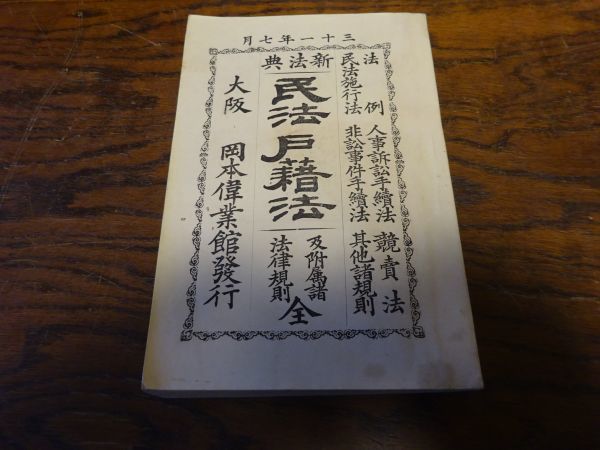 三十一年七月
新法典
法例
民法施行法
人事訴訟手續法
非訟事件手續法
競賣法
其他諸規則
民法戸籍法
及附属諸
法律規則
全
大阪 岡本偉業館發行